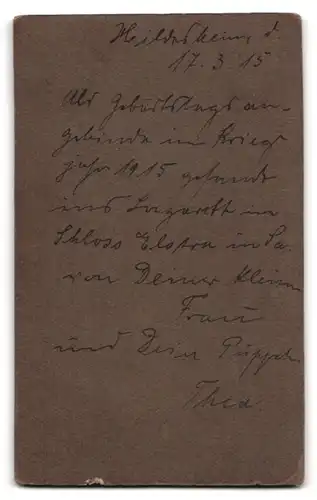 Hildesheim, d.
17.3.15
Als Geburtstagsan-
gebinde im Kriegs
jahr 1915 gesandt
ins Lazarett in
Schloss Elstra in Sa.
von Deiner kleinen
Frau
und Dein Puppch
Thea.